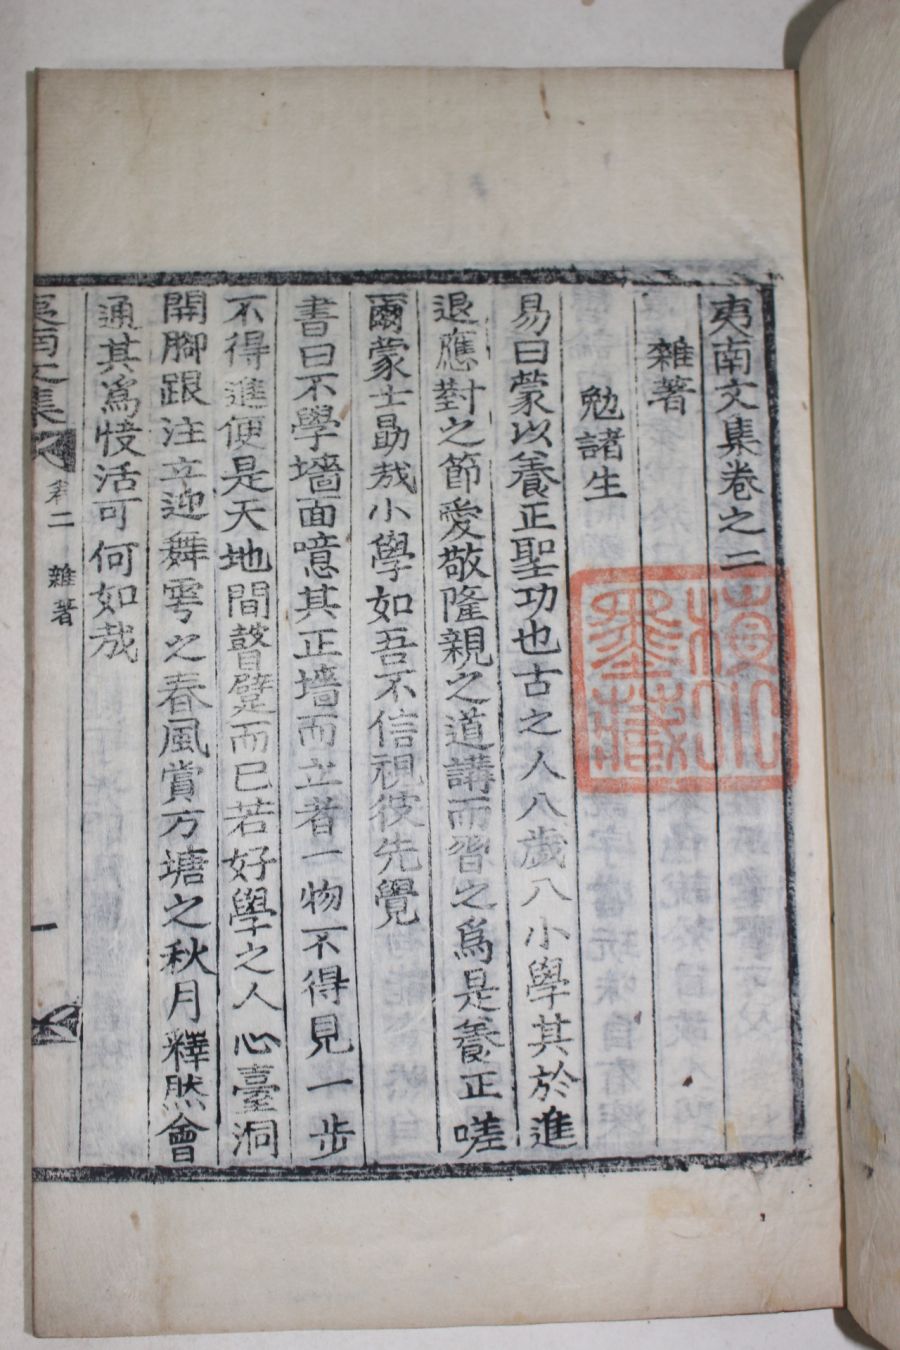 夷南文集卷之二
雜著
勉諸生
易曰蒙以養正聖功也古之人八歲八小學其於進
退應對之節愛敬隆親之道講而習之爲是養正嗟
爾蒙士勖哉小學如吾不信視彼先覺
書曰不學墻面噫其正墻而立者一物不得見一步
不得進便是天地間瞽躄而已若好學之人心臺洞
開脚跟注立迎舞雩之春風賞方塘之秋月釋然會
通其爲快活可何如哉
夷南文集
卷二
雜著
一